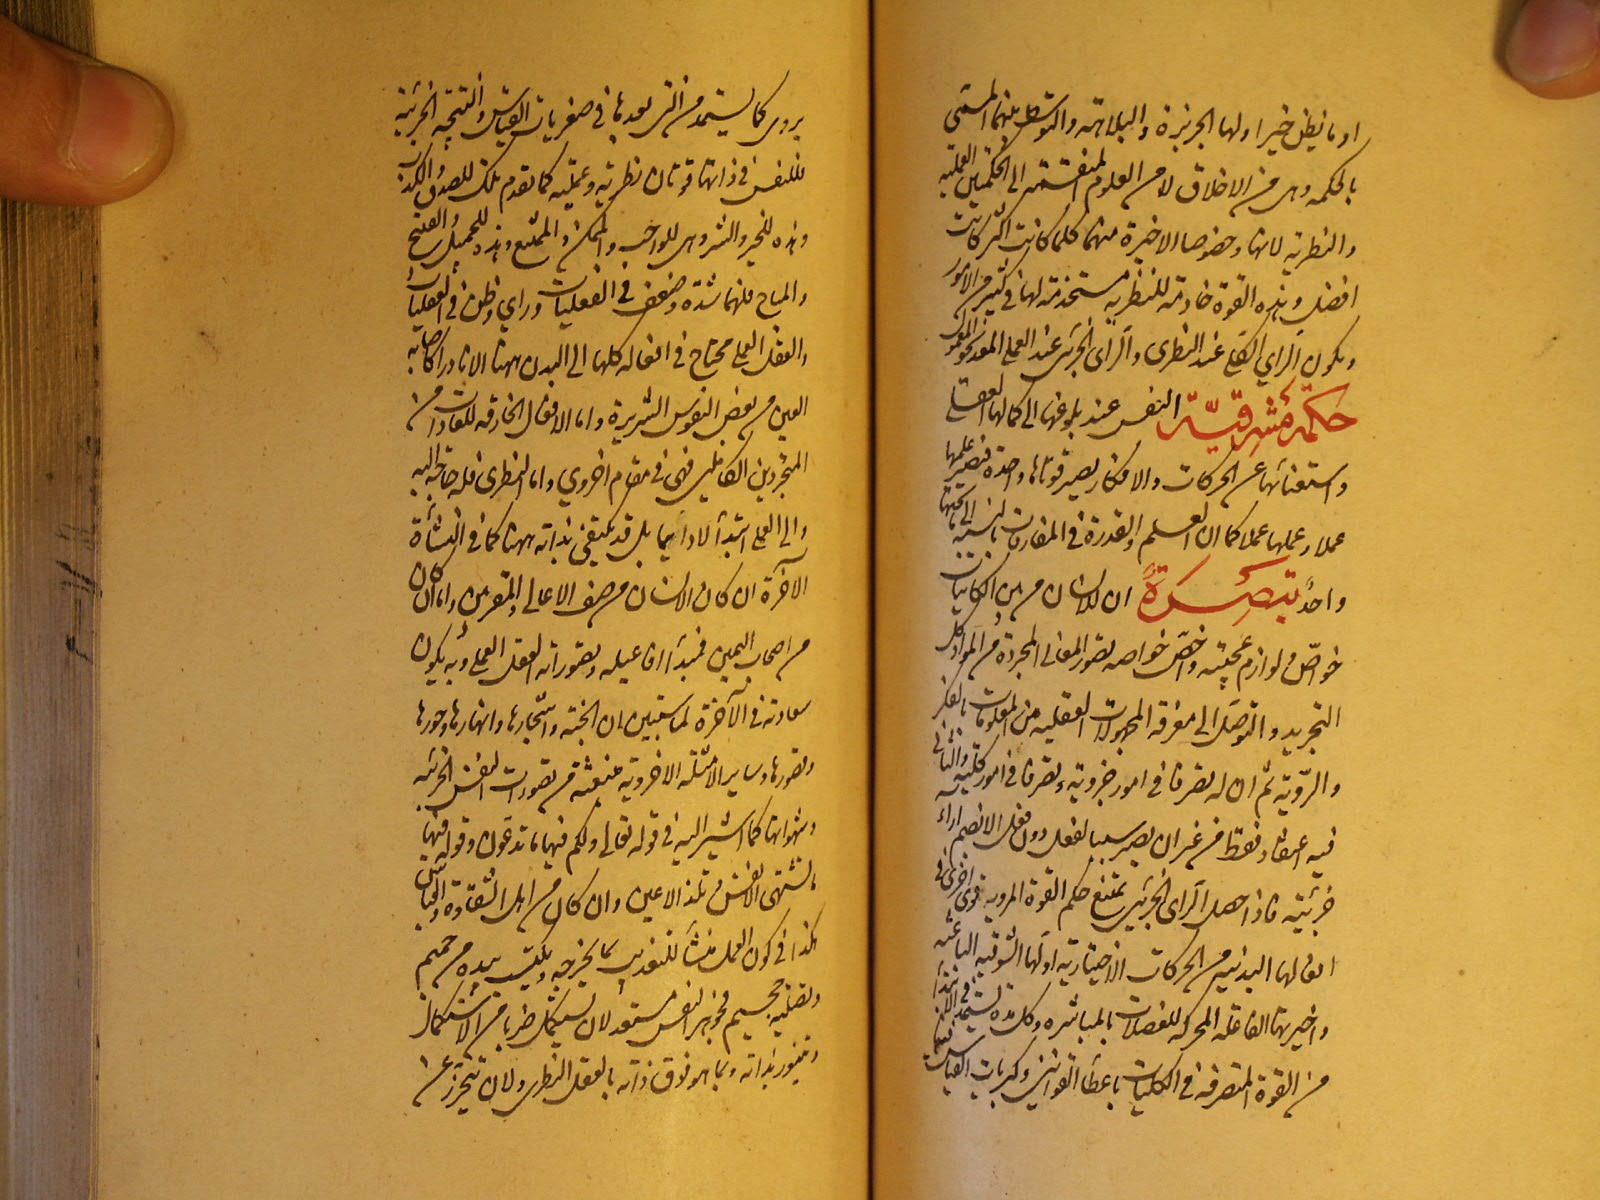 او ما يظن خيرا ولها الجربزة والبلاهة والتوسط بينهما المسمى
بالحكمة وهى من الاخلاق لا من العلوم المنقسمة الى الحكمتين العملية
والنظرية لانها وخصوصا الاخيرة منهما كلما كانت اكثر كانت
افضل وهذه القوة خادمة للنظرية مستخدمة لها فى كثير من الامور
ويكون الراي الكلى عند النظرى والراى الجزئى عند العملى المعد نحو المعمول
حكمة مشرقية النفس عند بلوغها الى كمالها العقلى
واستغنائها عن الحركات والافكار يصير قوتاها واحدة فيصير علمها
عملا وعملها علما كما ان العلم والقدرة فى المفارقات بالنسبة الى ما تحتها
واحد تبصرة ان للانسان من بين الكائنات
خواص ولوازم عجيبة واخص خواصه تصور المعانى المجردة من المواد كل
التجريد والتوصل الى معرفة المجهولات العقلية من المعلومات بالفكر
والروية ثم ان له تصرفا فى امور جزوية وتصرفا فى امور كلية والثانى
فيه اعتقاد فقط من غير ان يصير سببا لفعل دون فعل الا بضم اراء
جزئية فاذا حصل الراى الجزئى يتبع حكم القوة المروية قوى اخرى فى
افعالها البدنية من الحركات الاختيارية اولها الشوقية الباعثة
واخيرتها الفاعلة المحركة للعضلات بالمباشرة وكل هذه يستمد فى الابتداء
من القوة المتصرفة فى الكليات باعطاء القوانين وكبريات القياس فيما
يروى كما يستمد من التى بعدها فى صغريات القياس والنتيجة الجزئية
فللنفس فى ذاتها قوتان نظرية وعملية كما تقدم تلك للصدق والكذب
وهذه للخير والشر وهى للواجب والممكن والممتنع وهذه للجميل والقبيح
والمباح فلهما شدة وضعف فى الفعليات وراي وظن فى العقليات
والعقل العملى محتاج فى افعاله كلها الى البدن ههنا الا نادرا كاصابة
العين من بعض النفوس الشريرة واما الافعال الخارقة للعادات من
المتجردين الكاملين فهى فى مقام اخروي واما النظرى فله حاجة اليه
والى العملى ابتداء لا دائما بل قد يكتفى بذاته ههنا كما فى النشأة
الآخرة ان كان الانسان من صف الاعالى والمقربين واما ان كان
من اصحاب اليمين فمبدأ افاعيله وتصوراته العقل العملى وبه يكون
سعادته فى الآخرة لما ستبين ان الجنة واشجارها وانهارها وحورها
وقصورها وساير الامثلة الاخروية منبعثة من تصورات النفس الجزئية
وشهواتها كما اشير اليه فى قوله تعالى ولكم فيها ما تدعون وقوله فيها
ما تشتهى الانفس وتلذ الاعين وان كان من اهل الشقاوة والقياس
هكذا فى كون العمل منشأ للتعذيب بما يخرجه ويكتب بيده من حميم
وتصلية جحيم فجوهر النفس مستعد لان يستكمل ضربا من الاستكمال
ويتنور بذاته وبما هو فوق ذاته بالعقل النظرى ولان يتحرز عن